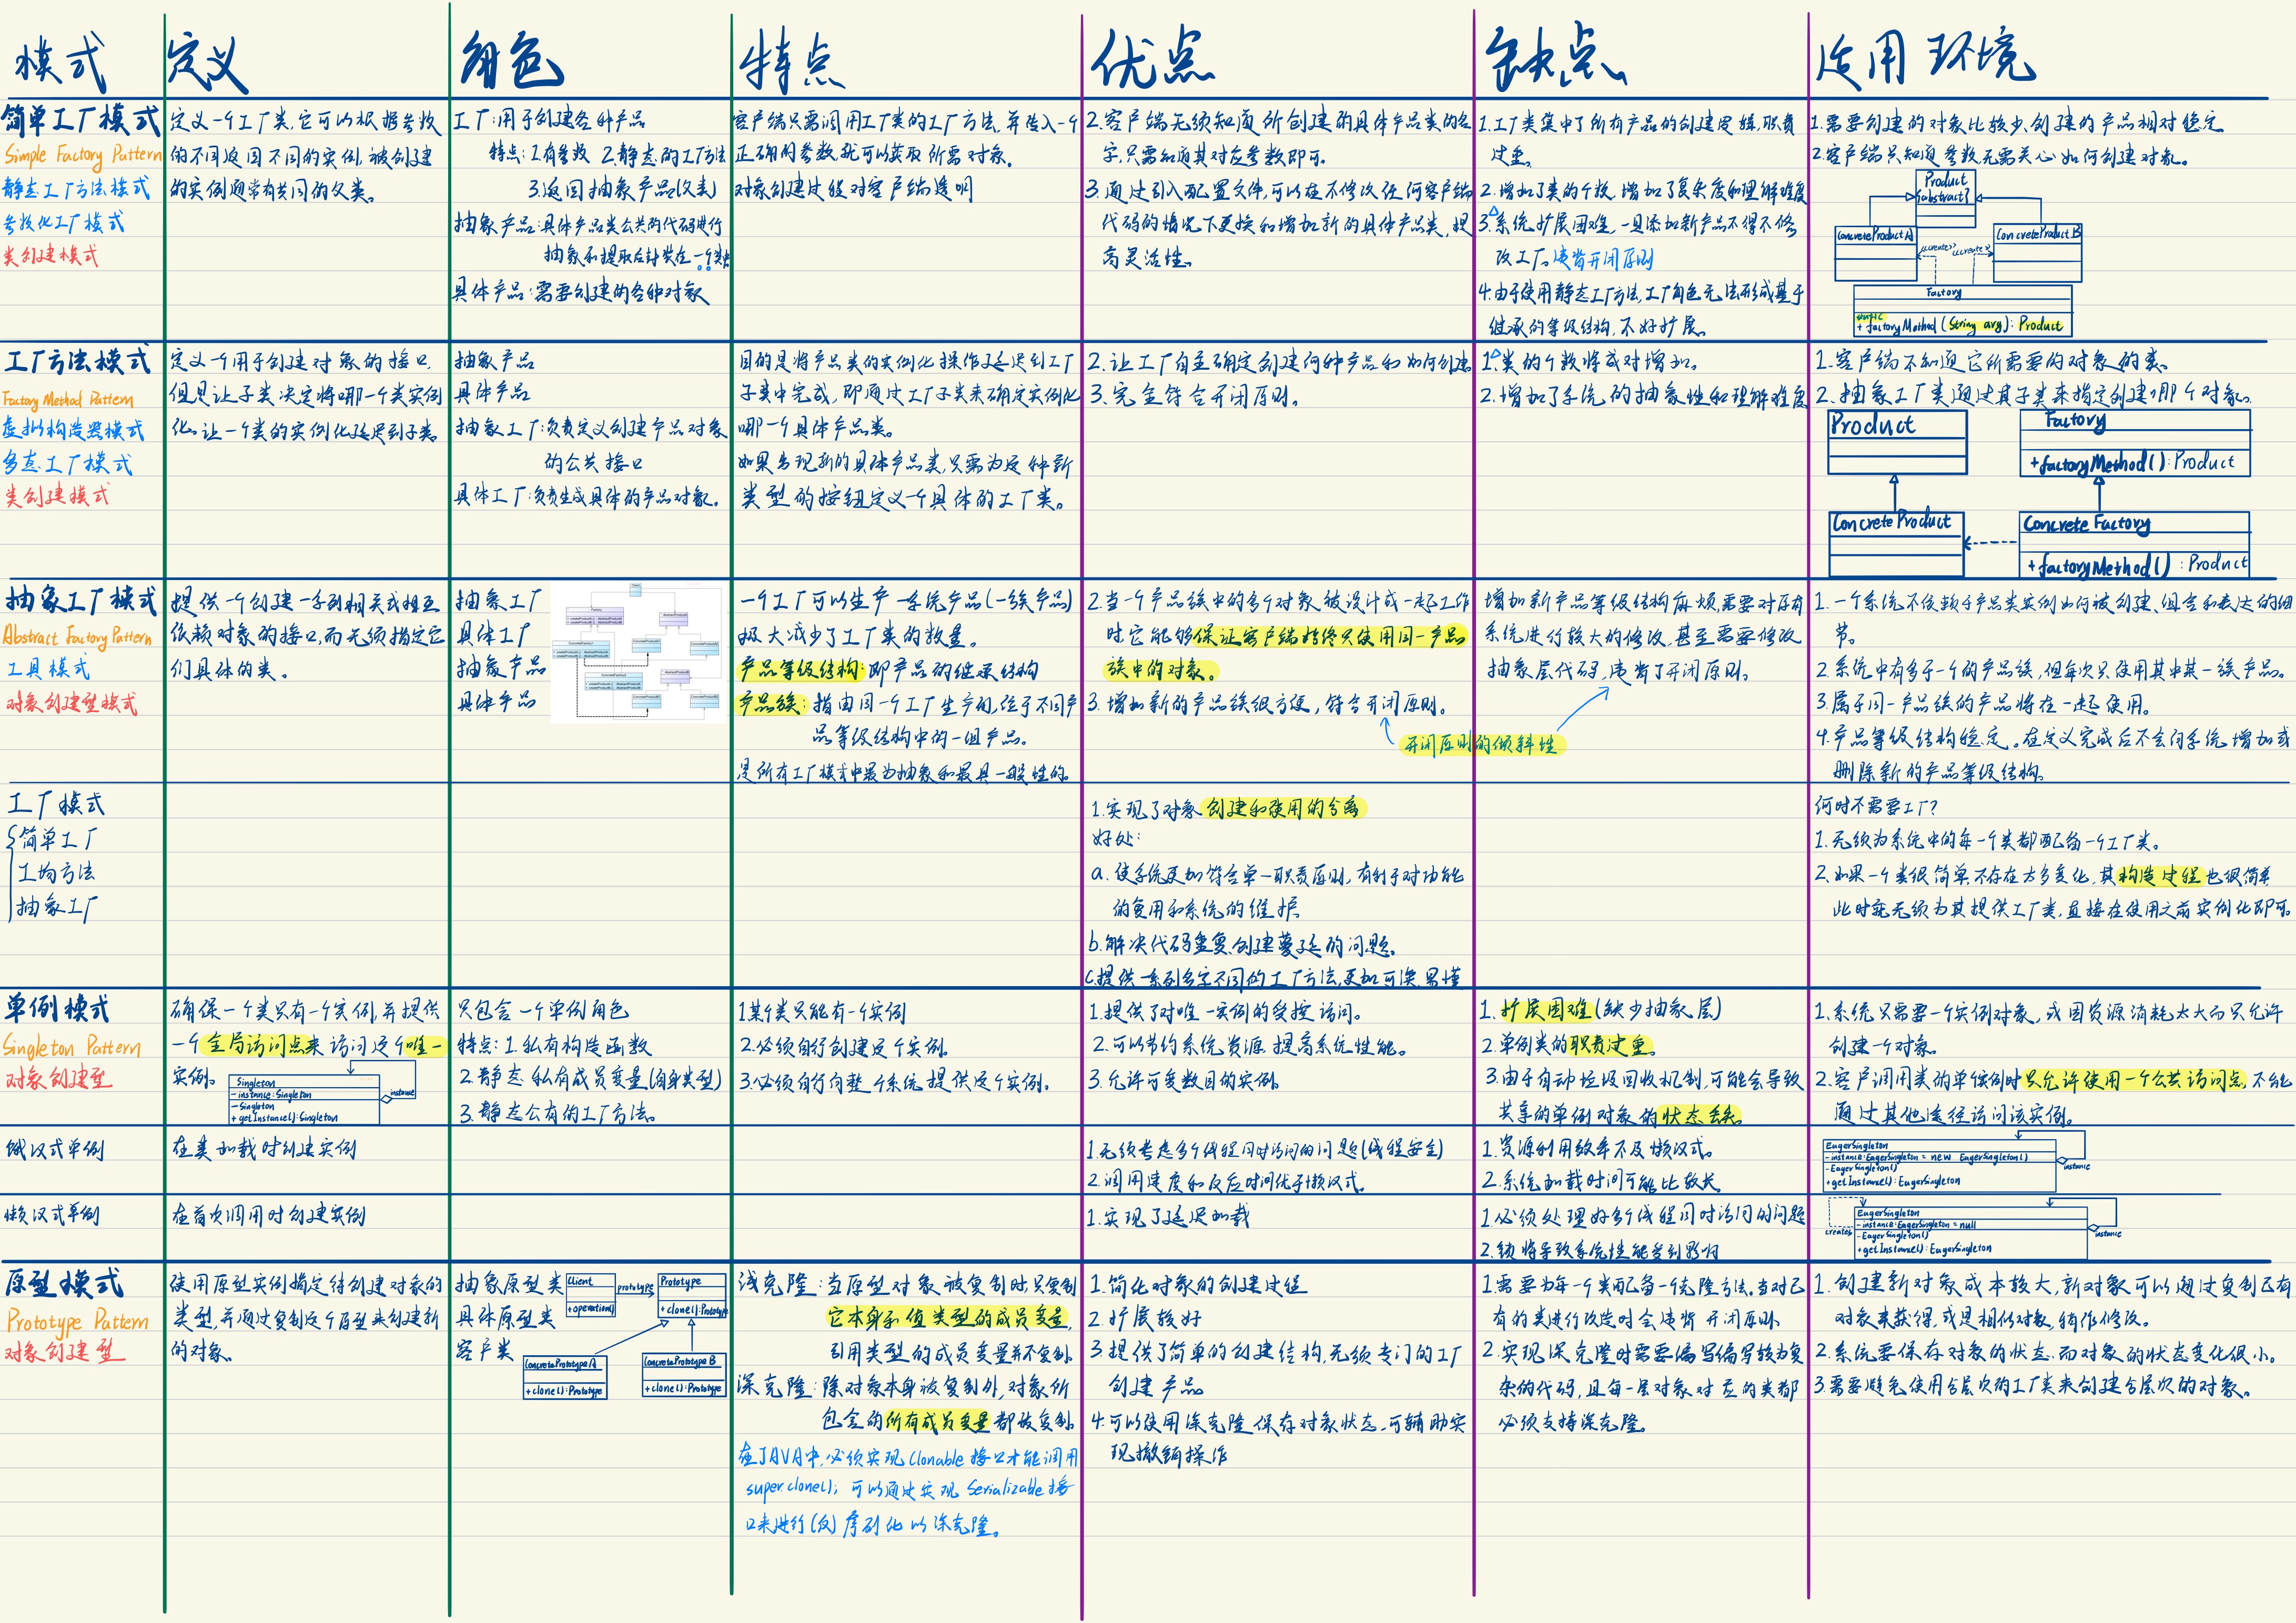 模式 定义 角色 特点 优点 缺点 适用环境
简单工厂模式
Simple Factory Pattern
静态工厂方法模式
参数化工厂模式
类创建模式
定义一个工厂类,它可以根据参数
的不同返回不同的实例,被创建
的实例通常有共同的父类。
工厂:用于创建各种产品
特点:1.有参数 2.静态的工厂方法
3.返回抽象产品(父类)
抽象产品:具体产品类公共的代码进行
抽象和提取后封装在一个类中
具体产品:需要创建的各种对象
客户端只需调用工厂类的工厂方法,并传入一个
正确的参数,就可以获取所需对象。
对象创建过程对客户端透明
2.客户端无须知道所创建的具体产品类的名
字,只需知道其对应参数即可。
3.通过引入配置文件,可以在不修改任何客户端
代码的情况下更换和增加新的具体产品类,提
高灵活性。
1.工厂类集中了所有产品的创建逻辑,职责
过重。
2.增加了类的个数,增加了复杂度和理解难度
3.系统扩展困难,一旦添加新产品不得不修
改工厂。违背开闭原则
4.由于使用静态工厂方法,工厂角色无法形成基于
继承的等级结构,不好扩展。
1.需要创建的对象比较少,创建的产品相对稳定
2.客户端只知道参数,无需关心如何创建对象。
Product
{abstract}
ConcreteProductA
ConcreteProductB
<<create>> <<create>>
Factory
static
+ factoryMethod (String arg): Product
工厂方法模式
Factory Method Pattern
虚拟构造器模式
多态工厂模式
类创建模式
定义一个用于创建对象的接口,
但是让子类决定将哪一个类实例
化。让一个类的实例化延迟到子类。
抽象产品
具体产品
抽象工厂:负责定义创建产品对象
的公共接口
具体工厂:负责生成具体的产品对象。
目的是将产品类的实例化操作延迟到工厂
子类中完成,即通过工厂子类来确定实例化
哪一个具体产品类。
如果出现新的具体产品类,只需为这种新
类型的按钮定义一个具体的工厂类。
2.让工厂自主确定创建何种产品和如何创建
3.完全符合开闭原则。
1.类的个数将成对增加。
2.增加了系统的抽象性和理解难度
1.客户端不知道它所需要的对象的类。
2.抽象工厂类通过其子类来指定创建哪个对象。
Product
Factory
+factoryMethod(): Product
Concrete Product
Concrete Factory
+ factoryMethod() : Product
抽象工厂模式
Abstract Factory Pattern
工具模式
对象创建型模式
提供一个创建一系列相关或相互
依赖对象的接口,而无须指定它
们具体的类。
抽象工厂
具体工厂
抽象产品
具体产品
一个工厂可以生产一系统产品(一族产品)
极大减少了工厂类的数量。
产品等级结构:即产品的继承结构
产品族:指由同一个工厂生产的,位于不同产
品等级结构中的一组产品。
是所有工厂模式中最为抽象和最具一般性的。
2.当一个产品族中的多个对象被设计成一起工作
时它能够保证客户端始终只使用同一产品
族中的对象。
3.增加新的产品族很方便,符合开闭原则。
开闭原则的倾斜性
增加新产品等级结构麻烦,需要对原有
系统进行较大的修改,甚至需要修改
抽象层代码,违背了开闭原则。
1.一个系统不依赖于产品类实例如何被创建、组合和表达的细
节。
2.系统中有多于一个的产品族,但每次只使用其中某一族产品。
3.属于同一产品族的产品将在一起使用。
4.产品等级结构稳定。在定义完成后不会向系统增加或
删除新的产品等级结构。
工厂模式
简单工厂
工厂方法
抽象工厂
1.实现了对象创建和使用的分离
好处:
a.使系统更加符合单一职责原则,有利于对功能
的复用和系统的维护
b.解决代码重复,创建蔓延的问题。
c.提供一系列名字不同的工厂方法,更加可读,易懂
何时不需要工厂?
1.无须为系统中的每一个类都配备一个工厂类。
2.如果一个类很简单,不存在太多变化,其构造过程也很简单
此时就无须为其提供工厂类,直接在使用之前实例化即可。
单例模式
Singleton Pattern
对象创建型
确保一个类只有一个实例,并提供
一个全局访问点来访问这个唯一
实例。
Singleton
- instance: Singleton
- Singleton
+ getInstance(): Singleton
instance
只包含一个单例角色
特点: 1.私有构造函数
2.静态私有成员变量(自身类型)
3.静态公有的工厂方法。
1.某个类只能有一个实例
2.必须自行创建这个实例。
3.必须自行向整个系统提供这个实例。
1.提供了对唯一实例的受控访问。
2.可以节约系统资源,提高系统性能。
3.允许可变数目的实例。
1.扩展困难(缺少抽象层)
2.单例类的职责过重。
3.由于自动垃圾回收机制,可能会导致
共享的单例对象的状态丢失。
1.系统只需要一个实例对象,或因资源消耗太大而只允许
创建一个对象。
2.客户调用类的单个实例时只允许使用一个公共访问点,不能
通过其他途径访问该实例。
饿汉式单例
在类加载时创建实例
1.无须考虑多个线程同时访问的问题(线程安全)
2.调用速度和反应时间优于懒汉式。
1.资源利用效率不及懒汉式。
2.系统加载时间可能比较长。
EagerSingleton
- instance: EagerSingleton = new EagerSingleton()
- EagerSingleton()
+ getInstance(): EagerSingleton
instance
懒汉式单例
在首次调用时创建实例
1.实现了延迟加载
1.必须处理好多个线程同时访问的问题
2.锁将导致系统性能受到影响
EagerSingleton
- instance: EagerSingleton = null
- EagerSingleton()
+ getInstance(): EagerSingleton
creates
instance
原型模式
Prototype Pattern
对象创建型
使用原型实例指定待创建对象的
类型,并通过复制这个原型来创建新
的对象。
抽象原型类
具体原型类
客户类
Client
+ operation()
prototype
Prototype
+ clone(): Prototype
ConcretePrototypeA
+ clone(): Prototype
ConcretePrototypeB
+ clone(): Prototype
浅克隆:当原型对象被复制时,只复制
它本身和值类型的成员变量,
引用类型的成员变量并不复制。
深克隆:除对象本身被复制外,对象所
包含的所有成员变量都被复制。
在JAVA中,必须实现Clonable接口才能调用
super.clone(); 可以通过实现 Serializable接
口来进行(反)序列化以深克隆。
1.简化对象的创建过程
2.扩展较好
3.提供了简单的创建结构,无须专门的工厂
创建产品
4.可以使用深克隆保存对象状态,可辅助实
现撤销操作
1.需要为每一个类配备一个克隆方法,当对已
有的类进行改造时会违背开闭原则
2.实现深克隆时需要编写编写较为复
杂的代码,且每一层对象对应的类都
必须支持深克隆。
1.创建新对象成本较大,新对象可以通过复制已有
对象来获得,或是相似对象,稍作修改。
2.系统要保存对象的状态,而对象的状态变化很小。
3.需要避免使用分层次的工厂类来创建分层次的对象。